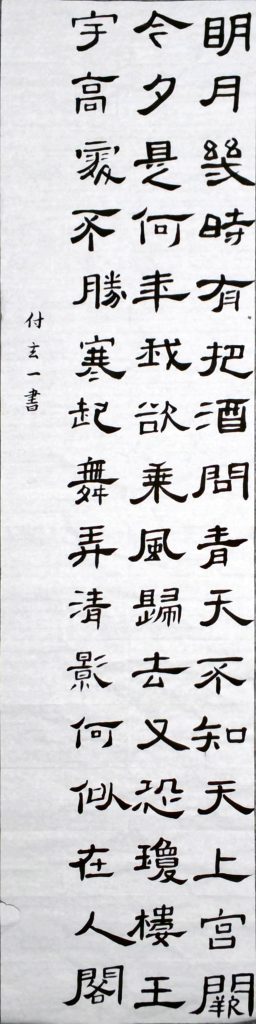 明月幾時有把酒問青天不知天上宮闕
今夕是何年我欲乘風歸去又恐瓊樓王
宇高處不勝寒起舞弄清影何似在人閣
付玄一書